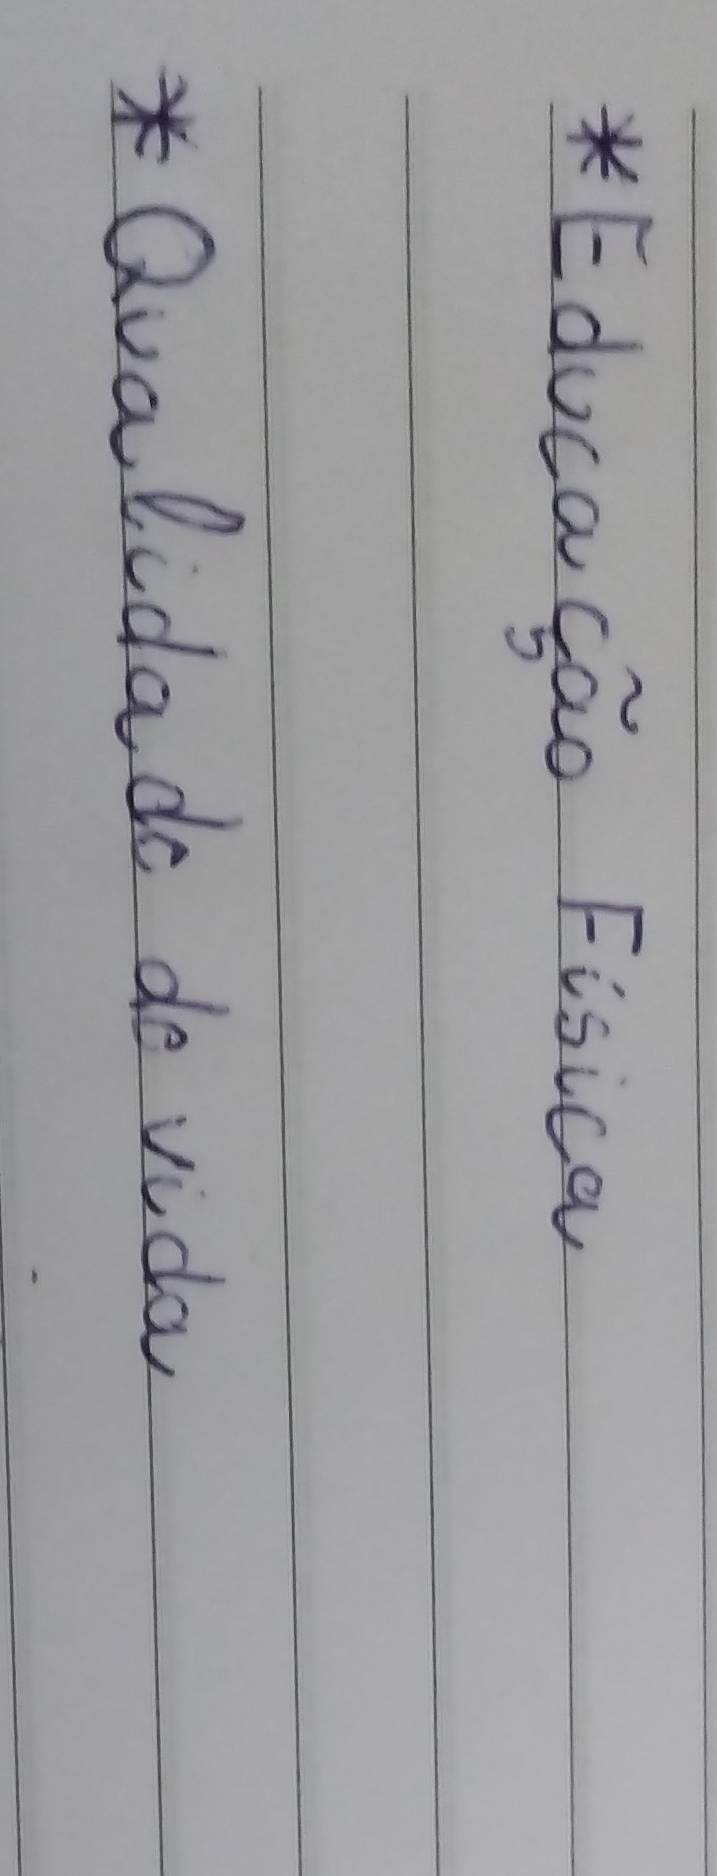 * Educação Física
* Qualidade de vida